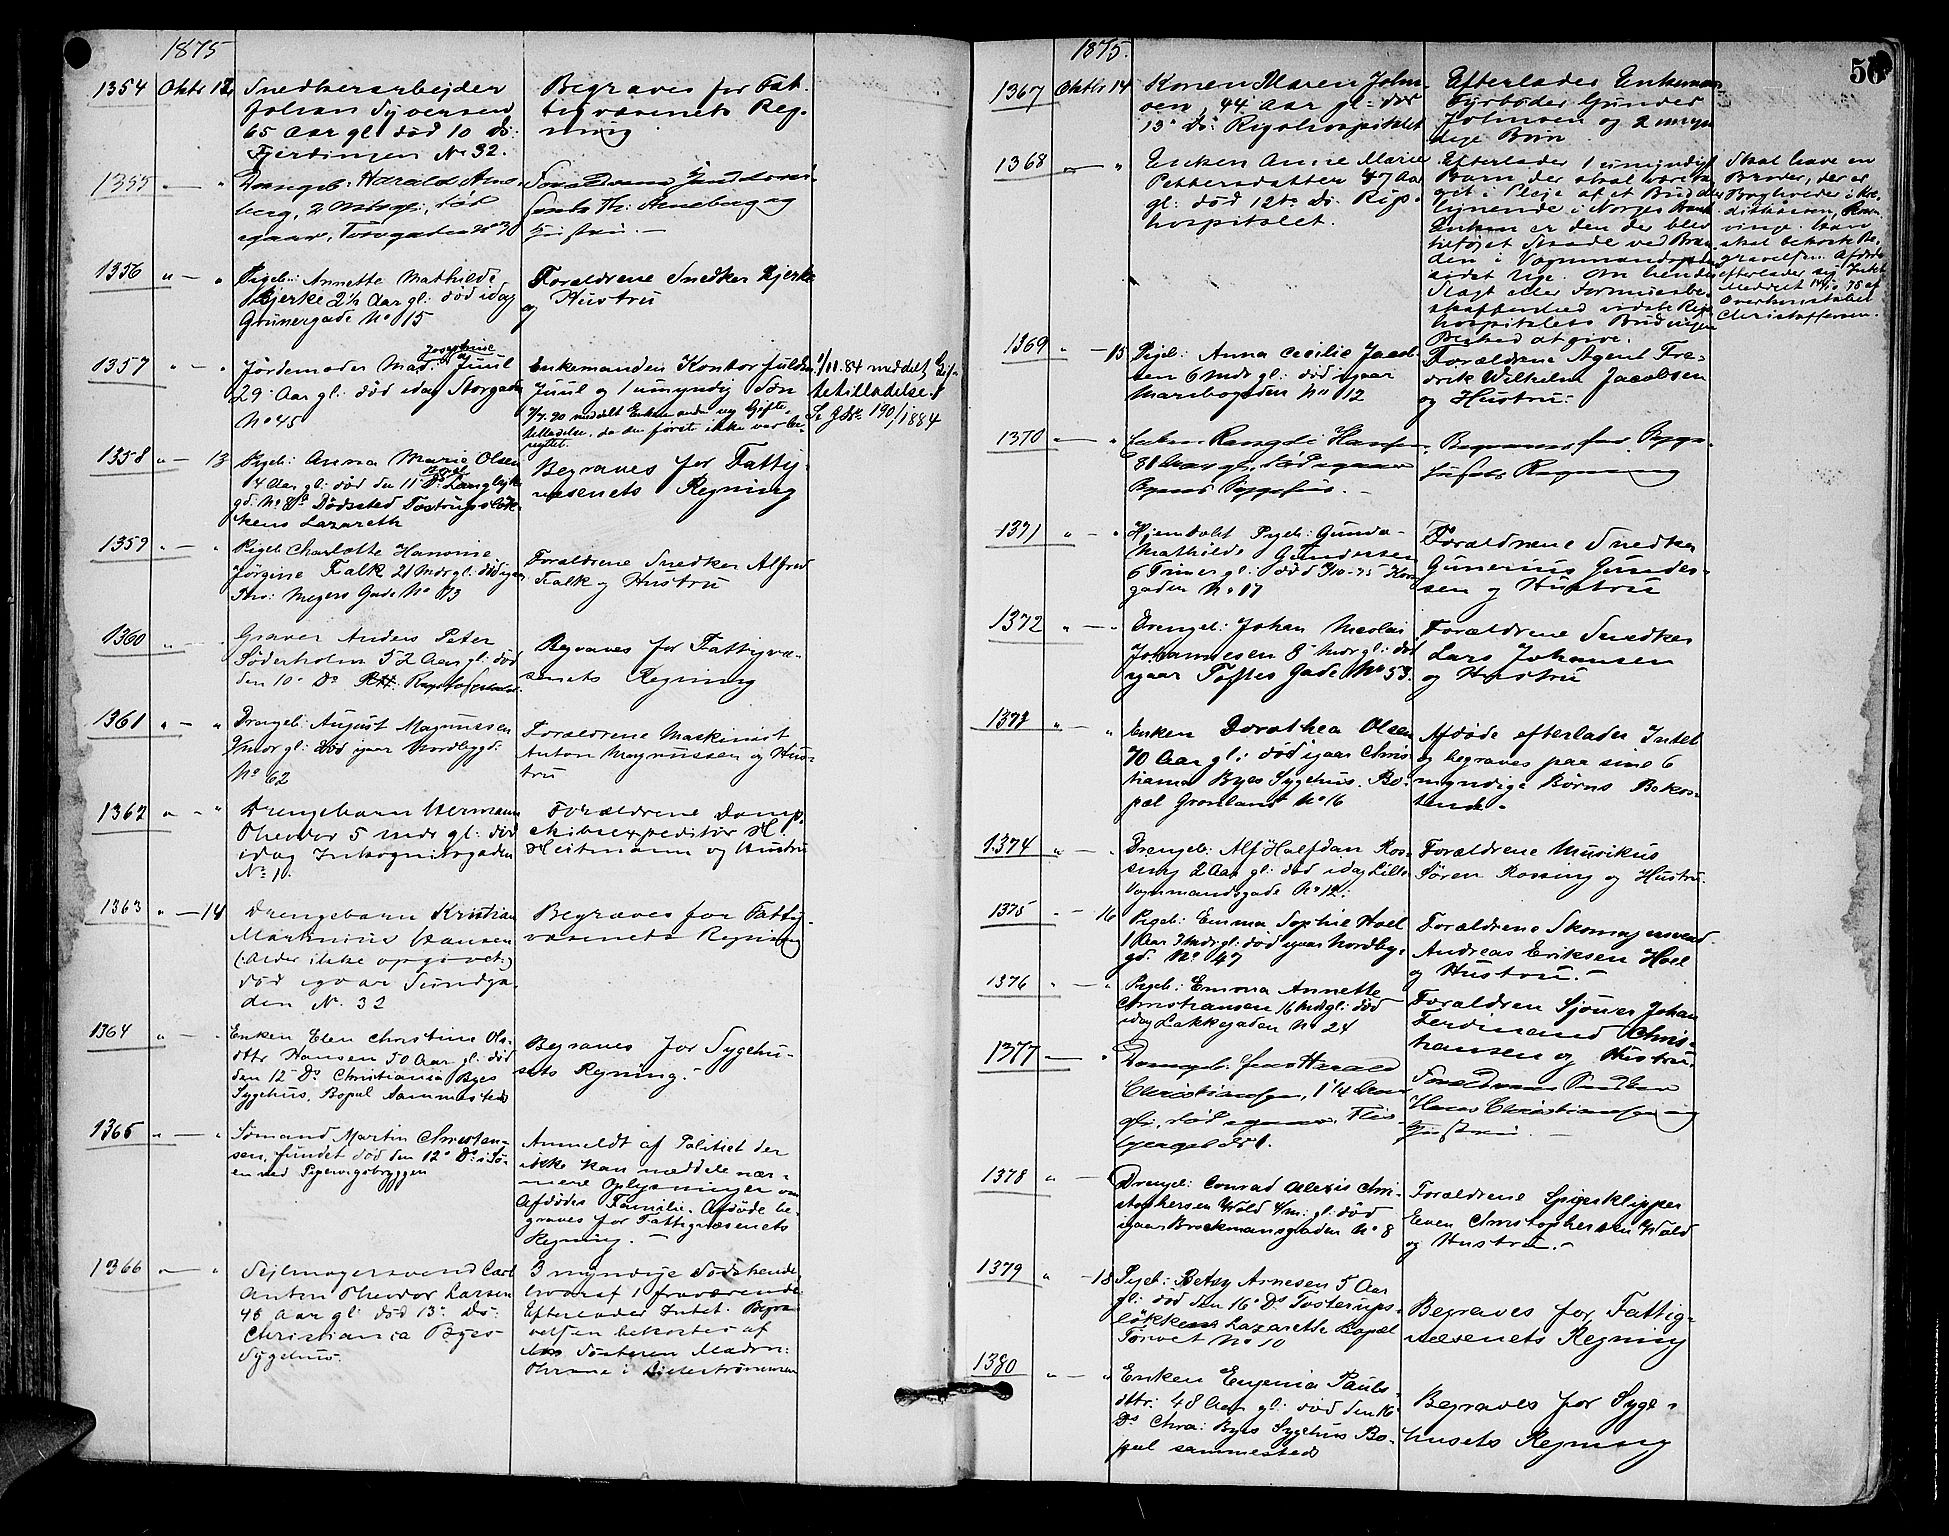 1875
1354 Oktbr 12 Snedkerarbejder
Johan Syversen
65 Aar gl: död 10 Ds:
Fjerdingen No 32.
Begraves for Fat-
tigvæsenets Reg-
ning
1355 — " Drengeb: Harald Arne-
berg, 2
igaar, Torvgaden No
Th: Arneberg og
Hustru. —
1356 " — " Pigeb: Annette Mathilde
Bjerke 2½ Aar gl: död idag
Grünergade No 15
Forældrene Snedker Bjerke
og Hustru
1357 " — " Jördemoder Mad: Josephine Juul
29 Aar gl: död idag Storgaden
No 45
Enkemanden Kontorfuldm.
Juul og 1 umyndig Søn
3/7.90 meddelt Enkemanden ny Gifte-
tilladelse, da den første ikke var be-
nyttet.
1/11.84 meddelt Gif-
tetilladelse.
190/1884
1358 " — 13 Pigeb: Anna Marie Olsen
4 Aar gl: död den 11 Ds Bopæl Langlejk
gd: No Dödssted Tostrupsløk-
kens Lazareth
Begraves for Fattig-
væsenets Regning
1359 " — " Pigeb: Charlotte Hanvine
Jörgine Falk 21 Mdr gl: död igaar
Thv: Meyers Gade No 73
Forældrene Snedker Alfred
Falk og Hustru
1360 " — " Graver Anders Peter
Söderholm 52 Aar gl: död
den 10 Ds Rigshospitalet
Begraves for Fattigvæ-
senets Regning
1361 " — " Drengeb: August Magnussen
9 Mdr gl: död igaar Nordbygd.
No 62
Forældrene Maskinist
Anton Magnussen og Hus-
tru
1362 " — " Drengebarn Hermann
Theodor 5 mdr gl: död
idag Inkognitogaden
No 1.
Forældrene Damp-
skibsexpeditör H
Heitmann og Hustru
1363 " — 14 Drengebarn Kristian
Martinius Hansen
(Alder ikke opgivet:)
död igaar Sundga
den No 32
Begraves for Fattig-
væsenets Regning
1364 " — " Enken Elen Christine Ols-
dttr Hansen 50 Aar gl: död
den 12 Ds Christiania Byes
Sygehus, Bopæl sammesteds
Begraves for Sygehu-
sets Regning.
1365 " — " Sömand Martin Christian-
sen, fundet död den 12 Ds i Sö-
en ved Pipervigsbryggen
Anmeldt af Politiet der
ikke kan meddele nær-
mere Oplysninger om
Afdödes Familie. Afdöde be-
graves for Fattigvæsenets
Regning. —
1366 " — " Sejlmagersvend Carl
Anton Theodor Larsen
48 Aar gl: död 13 Ds:
Christiania Byes
Sygehus.
3 myndige Södskende,
hvoraf 1 fraværende.
Efterlader Intet. Begra-
velsen bekostes af
Söstren Madm:
Thrane i
1875.
56
1367 Oktbr 14 Konen Maren John-
sen, 44 Aar gl: död
13 Ds: Rigshospitalet
Efterlader Enkemand
Fyrböder Gunder
Johnsen og 2 umyn
dige Börn
1368 — " Enken Anne Marie
Pettersdatter 47 Aar
gl: död 12te Ds. Rigs-
hospitalet.
Efterlader 1 umyndigt
Barn der skal være ta-
get i Pleje af et Bud der
tjenende i Norges Bank
Enken er den der blev
tilföjet Skade ved Bran-
den i Vognmandsgaden
sidst Uge. Om hendes
Slægt eller Formuesbe-
skaffenhed vidste Rigs
hospitalets Bud ingen
Besked at give.
Skal have en
Broder, der er
Borghveder i
, Kon
vinge. Han
skal bekoste Be-
gravelsen. Afdöde
efterlader sig Intet
Meddelt 14/10 75 af
Overkonstabel
Christoffersen.
1369 " — 15 Pigeb: Anna Cecilie Jacob-
sen 6 mdr gl: död igaar
Maribogaden No 12
Forældrene Agent Fre-
drik Wilhelm Jacobsen
og Hustru.
1370 — " Enken Rangdi Hansen
80 Aar gl, död igaar
Byens Sygehus. —
Begraves for Syge-
husets Regning
1371 " — " Hjemdöbt Pigeb: Gunda
Mathilde Gundersen
6 Timer gl: död 9/10-75
gaden No 17
Forældrene Snedker
Gunerius Gunder-
sen og Hustru
1372 " — " Drengeb: Johan Nicolai
Johannesen 8 Mdr gl: död
igaar Toftes Gade No 53.
Forældrene Snedker
Lars Johansen
og Hustru
1373 " — " Enken Dorothea Olsen
70 Aar gl: död igaar Chris
tiania Byes Sygehus. Bo-
pæl Grönland No 16
Afdöde efterlader Intet
og begraves paa sine 6
myndige Börns Bekos-
tende.
1374 " — " Drengeb: Alf Halfdan Ros-
sing 2 Aar gl: död idag Lille
Vognmandsgade No 12.
Forældrene Musikus
Sören Rossing og Hustru.
1375 " — 16 Pigeb: Emma Sophie Hoel
1 Aar 3 Mdr gl: död igaar Nordby-
gd. No 47
Forældrene Skomagersvend
Andreas Eriksen Hoel
og Hustru. —
1376 " — " Pigeb: Emma Annette
Christiansen 16 Mdr gl: död
idag Lakkegaden No 24
Forældren Sjouer Johan
Ferdinand Chris-
tiansen og Hustru.
1377 — " Drengeb: Jens Harald
Christiansen, 1¼ Aar
gl., död igaar,
No 1.
Forældrene
Hans Christiansen og
Hustru. —
1378 " — Drengeb: Conrad Alexis Chri-
stophersen Wold 4/m: gl: död
igaar Brockmansgaden No 8
Forældrene Spigerklipper
Even Christophersen Wold
og Hustru. —
1379 " — 18 Pigeb: Betsy Arnesen 5 Aar
gl: död den 16 Ds Tosterups-
lökkens Lazareth. Bopæl
Torvet No 10
Begraves for Fattig-
væsenets Regning
1380 " — " Enken Eugenia Pauls-
dttr: 48 Aar gl: död den 16
Ds Chra: Byes Sygehus Bo-
pæl sammesteds
Begraves for Syge-
husets Regning